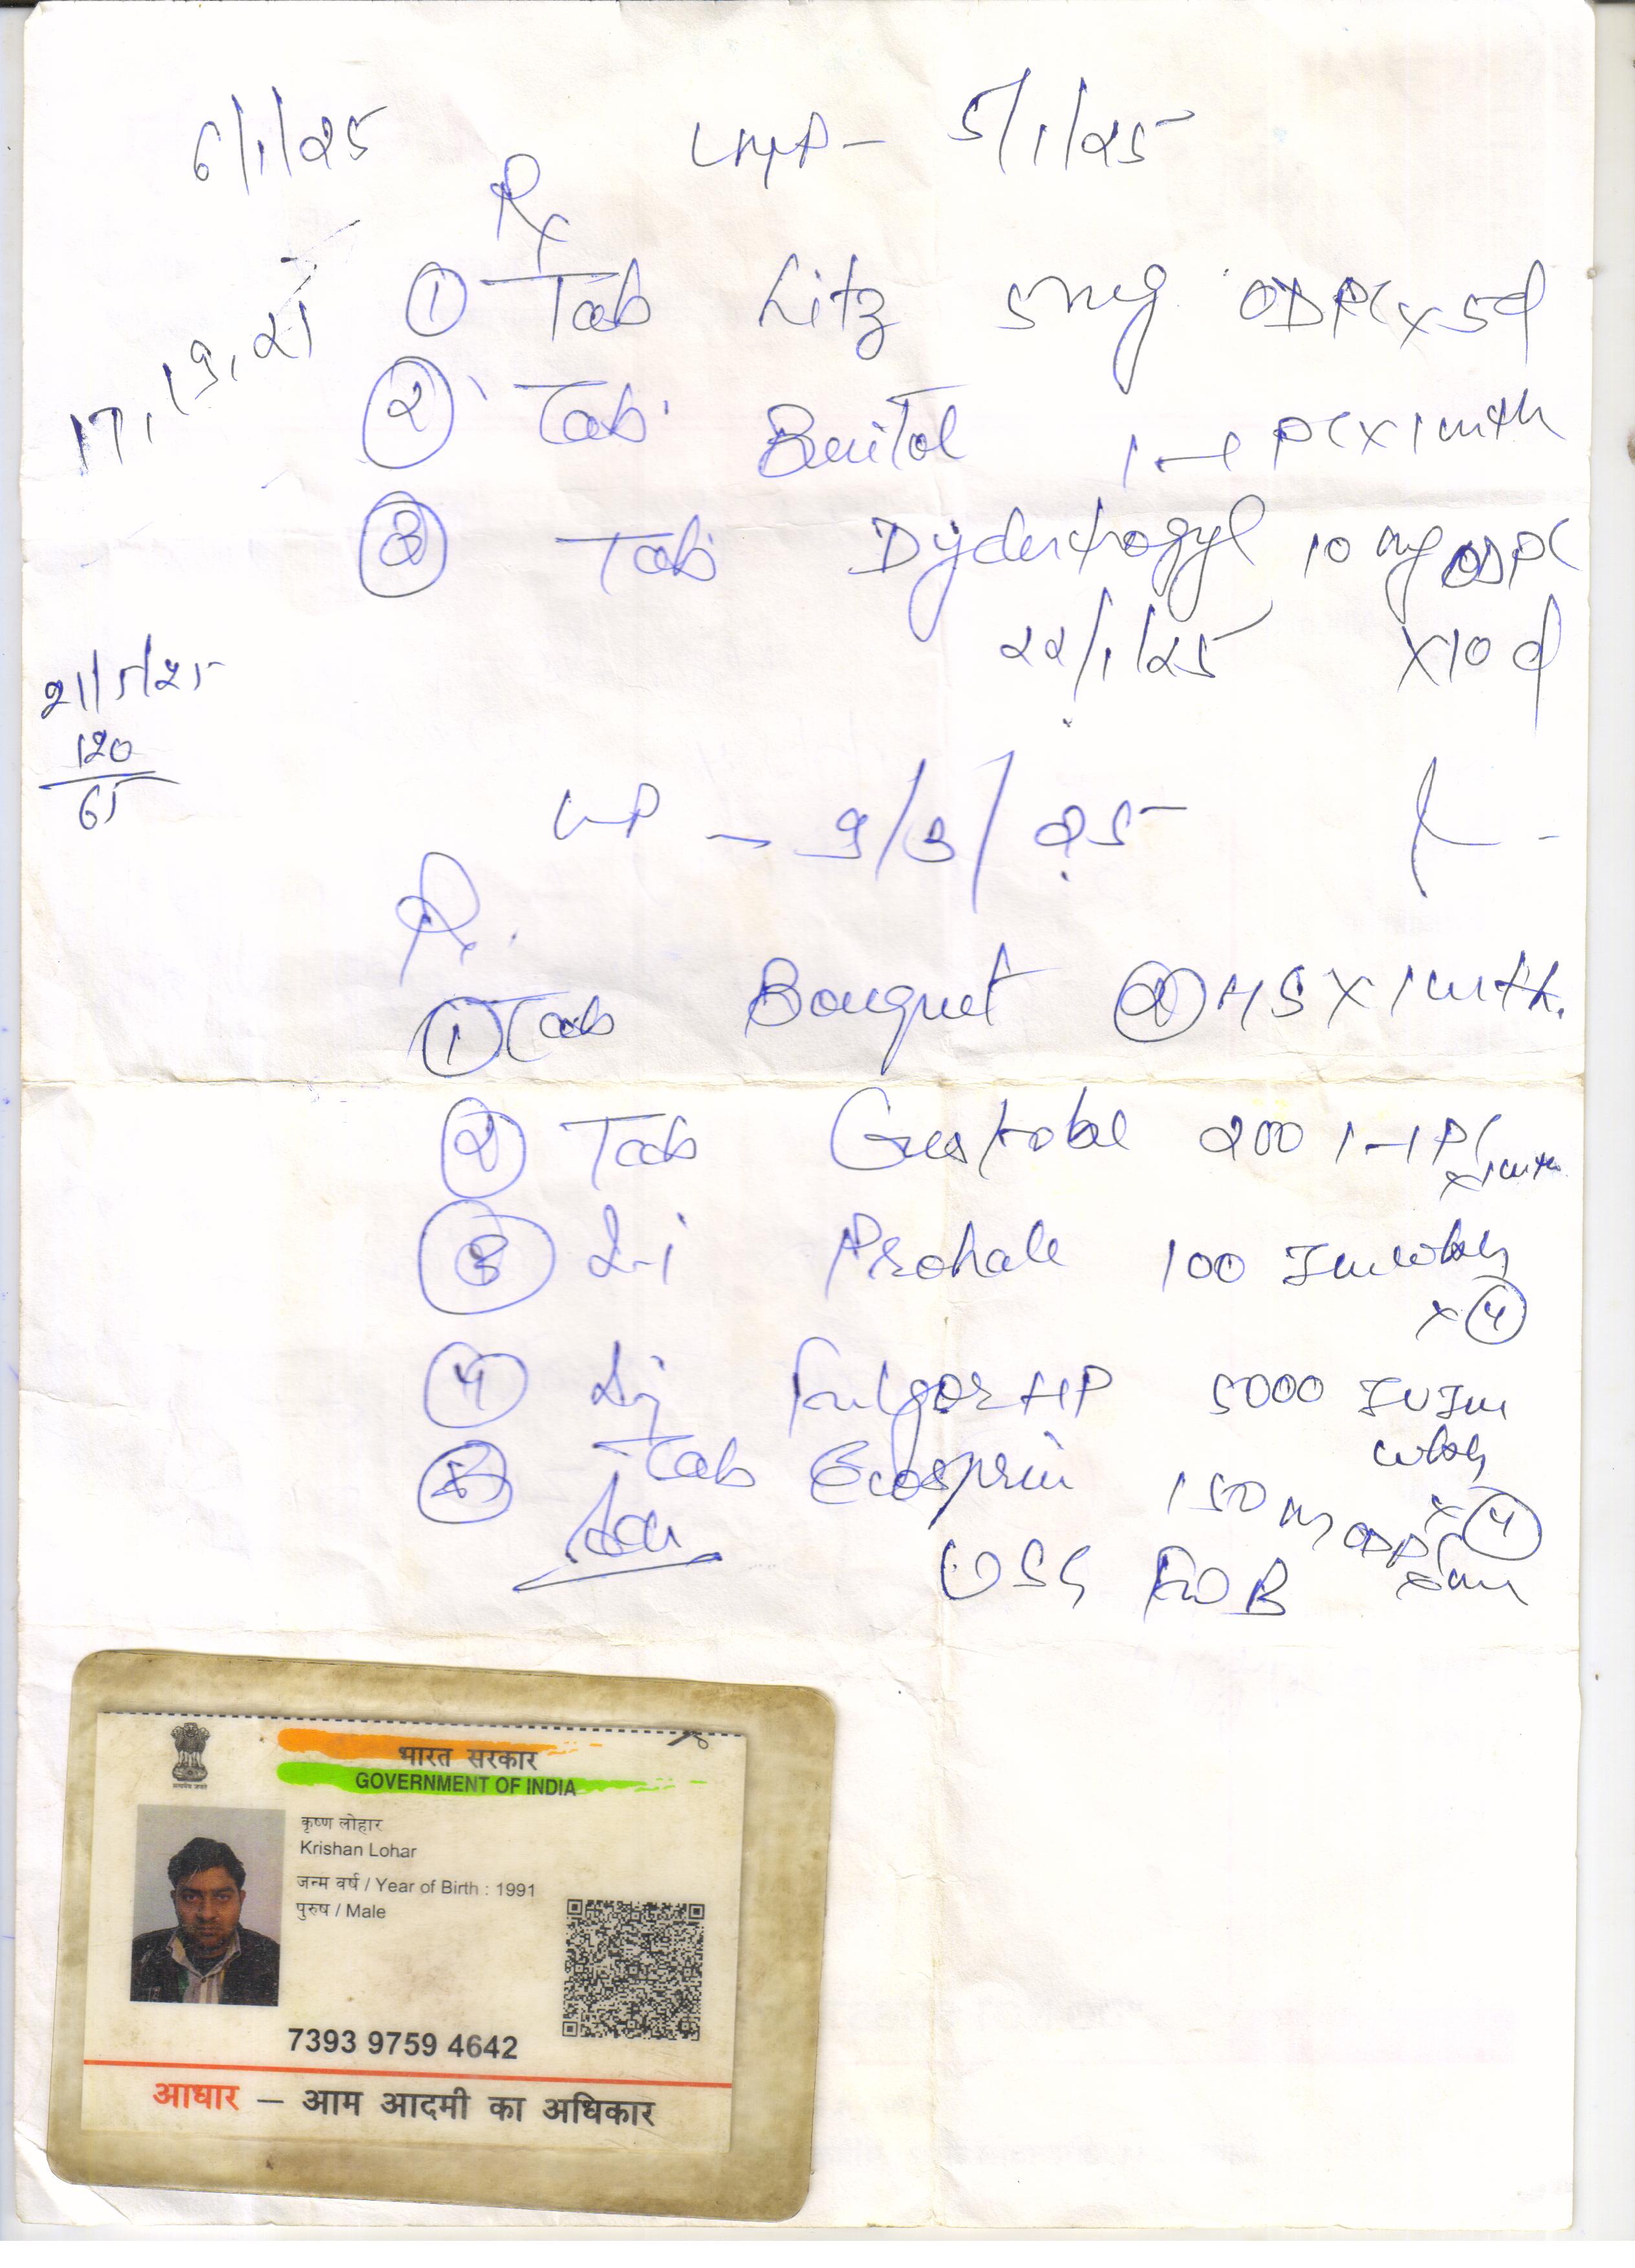 6/1/25 LMP - 5/1/25
Rx
① Tab Litz 5mg OD PC x 5d
17, 19, 21
② Tab 1-1 PC x 1 mth
③ Tab 10 mg OD PC
22/1/25 x 10 d
21/5/25
120
65
LMP - 9/3/25
Rx
① Tab Bouquet HS x 1 mth.
② Tab 200 1-1 PC
x 1 mth
③ Inj 100 Im wkly
x ④
④ Inj HP 5000 IU Im
wkly
x ④
⑤ Tab Ecosprin 150 mg OD PC
USG
भारत सरकार
GOVERNMENT OF INDIA
कृष्ण लोहार
Krishan Lohar
जन्म वर्ष / Year of Birth : 1991
पुरुष / Male
7393 9759 4642
आधार – आम आदमी का अधिकार